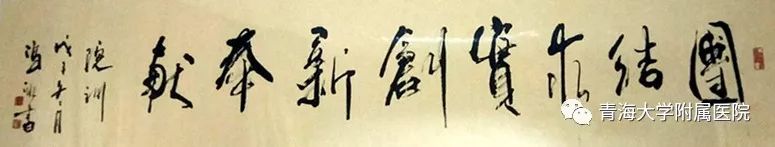 團結求實創新奉獻
院訓
戊子年月
青海大学附属医院